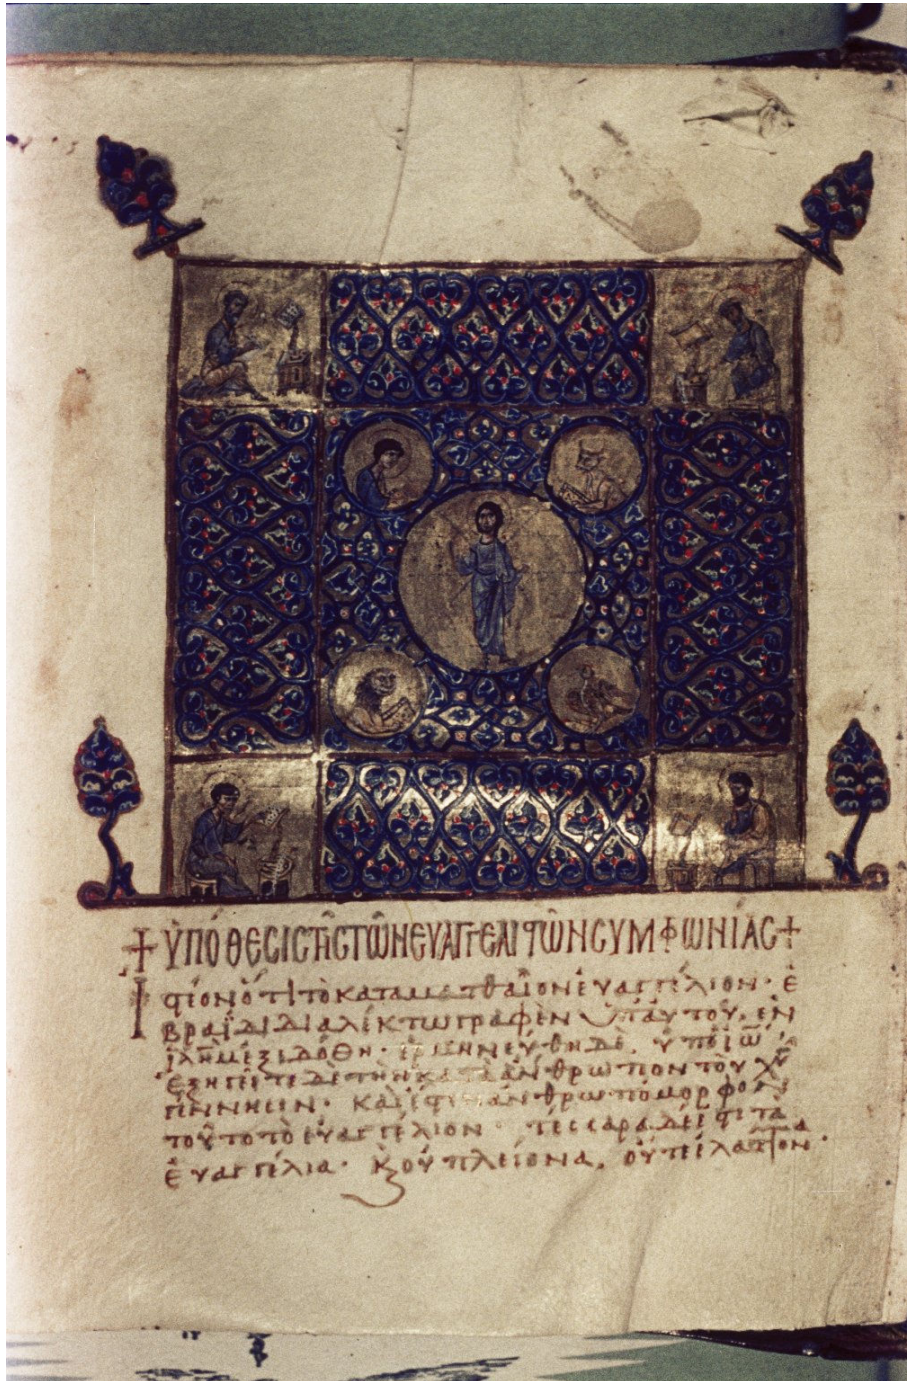 + ὙΠΌΘΕCΙC ΤῆC ΤῶΝ ΕΥΑΓΓΕΛΙϚῶΝ CΥΜΦΩΝΊΑC +
Ἰϛέον ὅτι τὸ κατὰ ματθαῖον ἐυαγγέλιον· ἑ
βραΐδι διαλέκτω γραφὲν ὑπ' ἀυτοῦ, ἐν
ϊλὴμ ἐξεδόθη· ἑρμηνεύθη δὲ, ὑπὸ ϊῶ·
ἐξηγεῖτε δὲ τὴν κατὰ ἄνθρωπον τοῦ χῦ
γέννησιν· καὶ ἐϛιν ἀνθρωπόμορφον
τοῦτο τὸ ἐυαγγέλιον· τέσσαρα δέ ἐϛι τὰ
ἐυαγγέλια· κ οὐ πλείονα, οὔτε